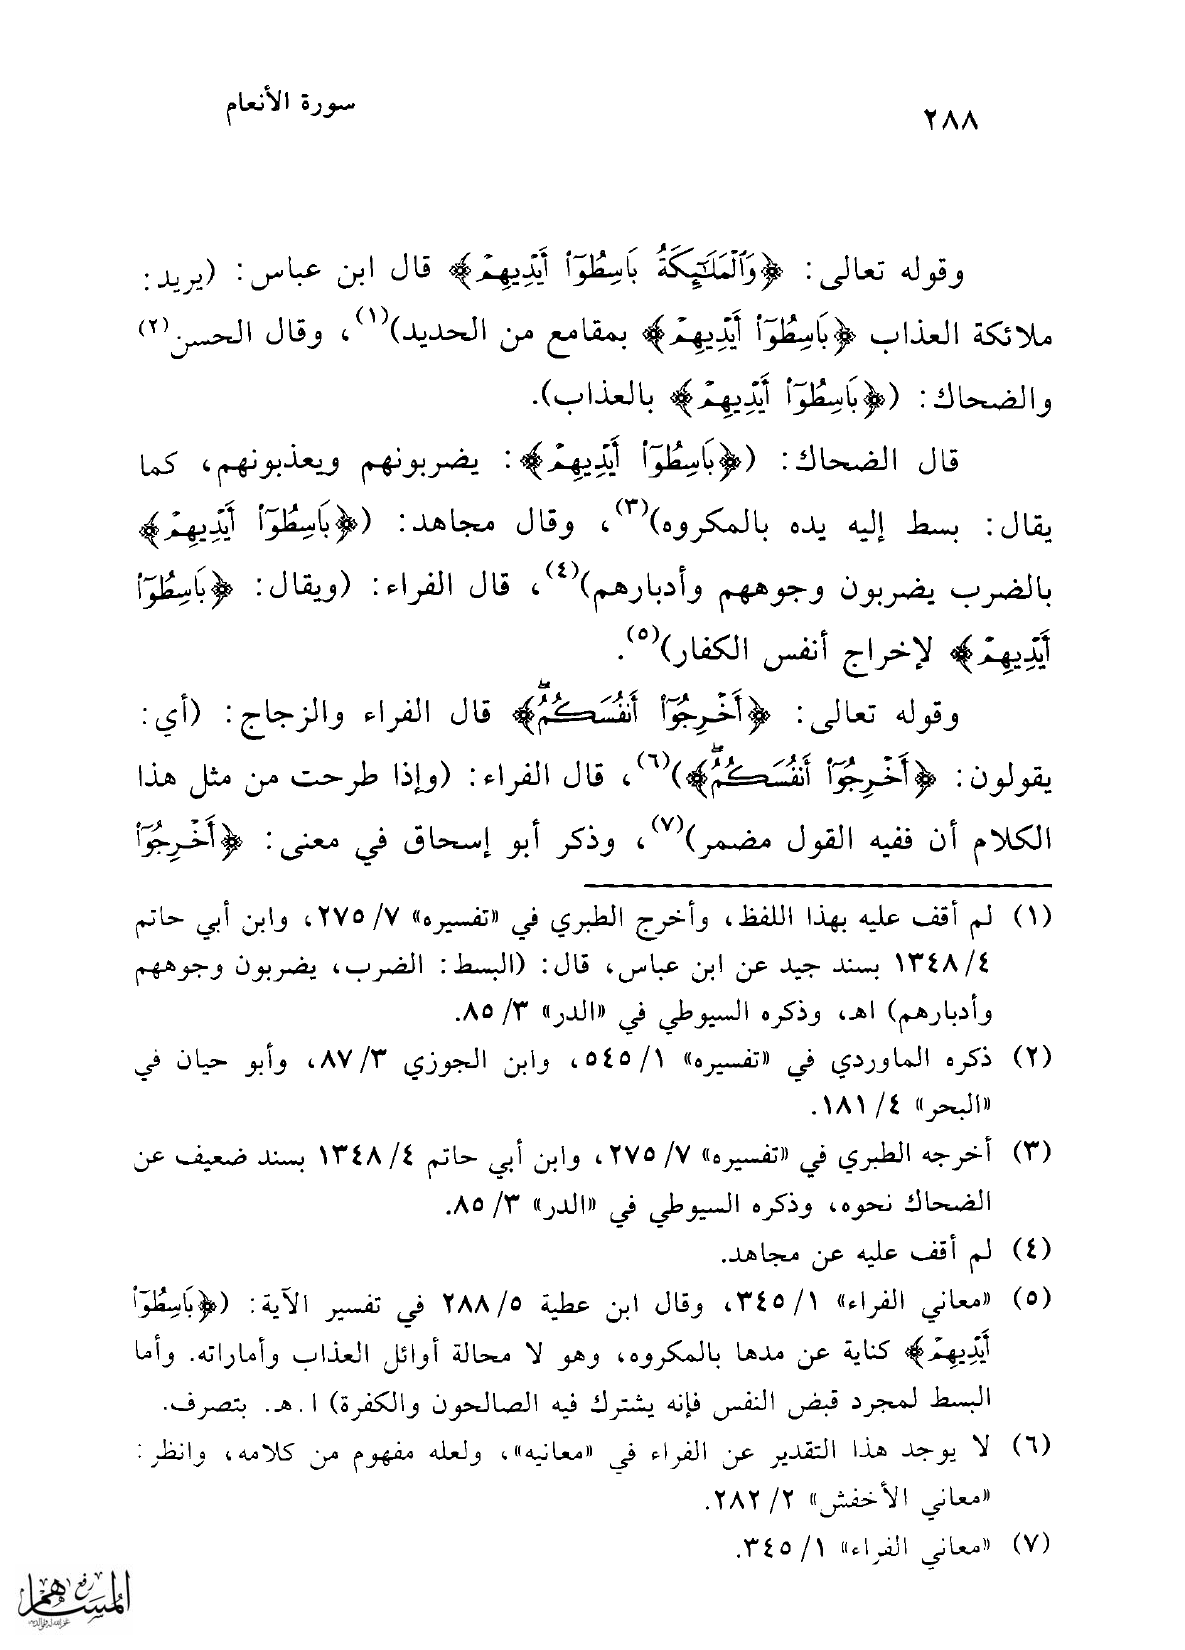 ٢٨٨
سورة الأنعام
وقوله تعالى: ﴿وَٱلْمَلَٰٓئِكَةُ بَاسِطُوٓا۟ أَيْدِيهِمْ﴾ قال ابن عباس: (يريد:
ملائكة العذاب ﴿بَاسِطُوٓا۟ أَيْدِيهِمْ﴾ بمقامع من الحديد)(١)، وقال الحسن(٢)
والضحاك: (﴿بَاسِطُوٓا۟ أَيْدِيهِمْ﴾ بالعذاب).
قال الضحاك: (﴿بَاسِطُوٓا۟ أَيْدِيهِمْ﴾: يضربونهم ويعذبونهم، كما
يقال: بسط إليه يده بالمكروه)(٣)، وقال مجاهد: (﴿بَاسِطُوٓا۟ أَيْدِيهِمْ﴾
بالضرب يضربون وجوههم وأدبارهم)(٤)، قال الفراء: (ويقال: ﴿بَاسِطُوٓا۟
أَيْدِيهِمْ﴾ لإخراج أنفس الكفار)(٥).
وقوله تعالى: ﴿أَخْرِجُوٓا۟ أَنفُسَكُمُ ۖ﴾ قال الفراء والزجاج: (أي:
يقولون: ﴿أَخْرِجُوٓا۟ أَنفُسَكُمُ ۖ﴾)(٦)، قال الفراء: (وإذا طرحت من مثل هذا
الكلام أن ففيه القول مضمر)(٧)، وذكر أبو إسحاق في معنى: ﴿أَخْرِجُوٓا۟
(١) لم أقف عليه بهذا اللفظ، وأخرج الطبري في «تفسيره» ٧/ ٢٧٥، وابن أبي حاتم
٤/ ١٣٤٨ بسند جيد عن ابن عباس، قال: (البسط: الضرب، يضربون وجوههم
وأدبارهم) اهـ، وذكره السيوطي في «الدر» ٣/ ٨٥.
(٢) ذكره الماوردي في «تفسيره» ١/ ٥٤٥، وابن الجوزي ٣/ ٨٧، وأبو حيان في
«البحر» ٤/ ١٨١.
(٣) أخرجه الطبري في «تفسيره» ٧/ ٢٧٥، وابن أبي حاتم ٤/ ١٣٤٨ بسند ضعيف عن
الضحاك نحوه، وذكره السيوطي في «الدر» ٣/ ٨٥.
(٤) لم أقف عليه عن مجاهد.
(٥) «معاني الفراء» ١/ ٣٤٥، وقال ابن عطية ٥/ ٢٨٨ في تفسير الآية: (﴿بَاسِطُوٓا۟
أَيْدِيهِمْ﴾ كناية عن مدها بالمكروه، وهو لا محالة أوائل العذاب وأماراته. وأما
البسط لمجرد قبض النفس فإنه يشترك فيه الصالحون والكفرة) ا.هـ. بتصرف.
(٦) لا يوجد هذا التقدير عن الفراء في «معانيه»، ولعله مفهوم من كلامه، وانظر:
«معاني الأخفش» ٢/ ٢٨٢.
(٧) «معاني الفراء» ١/ ٣٤٥.